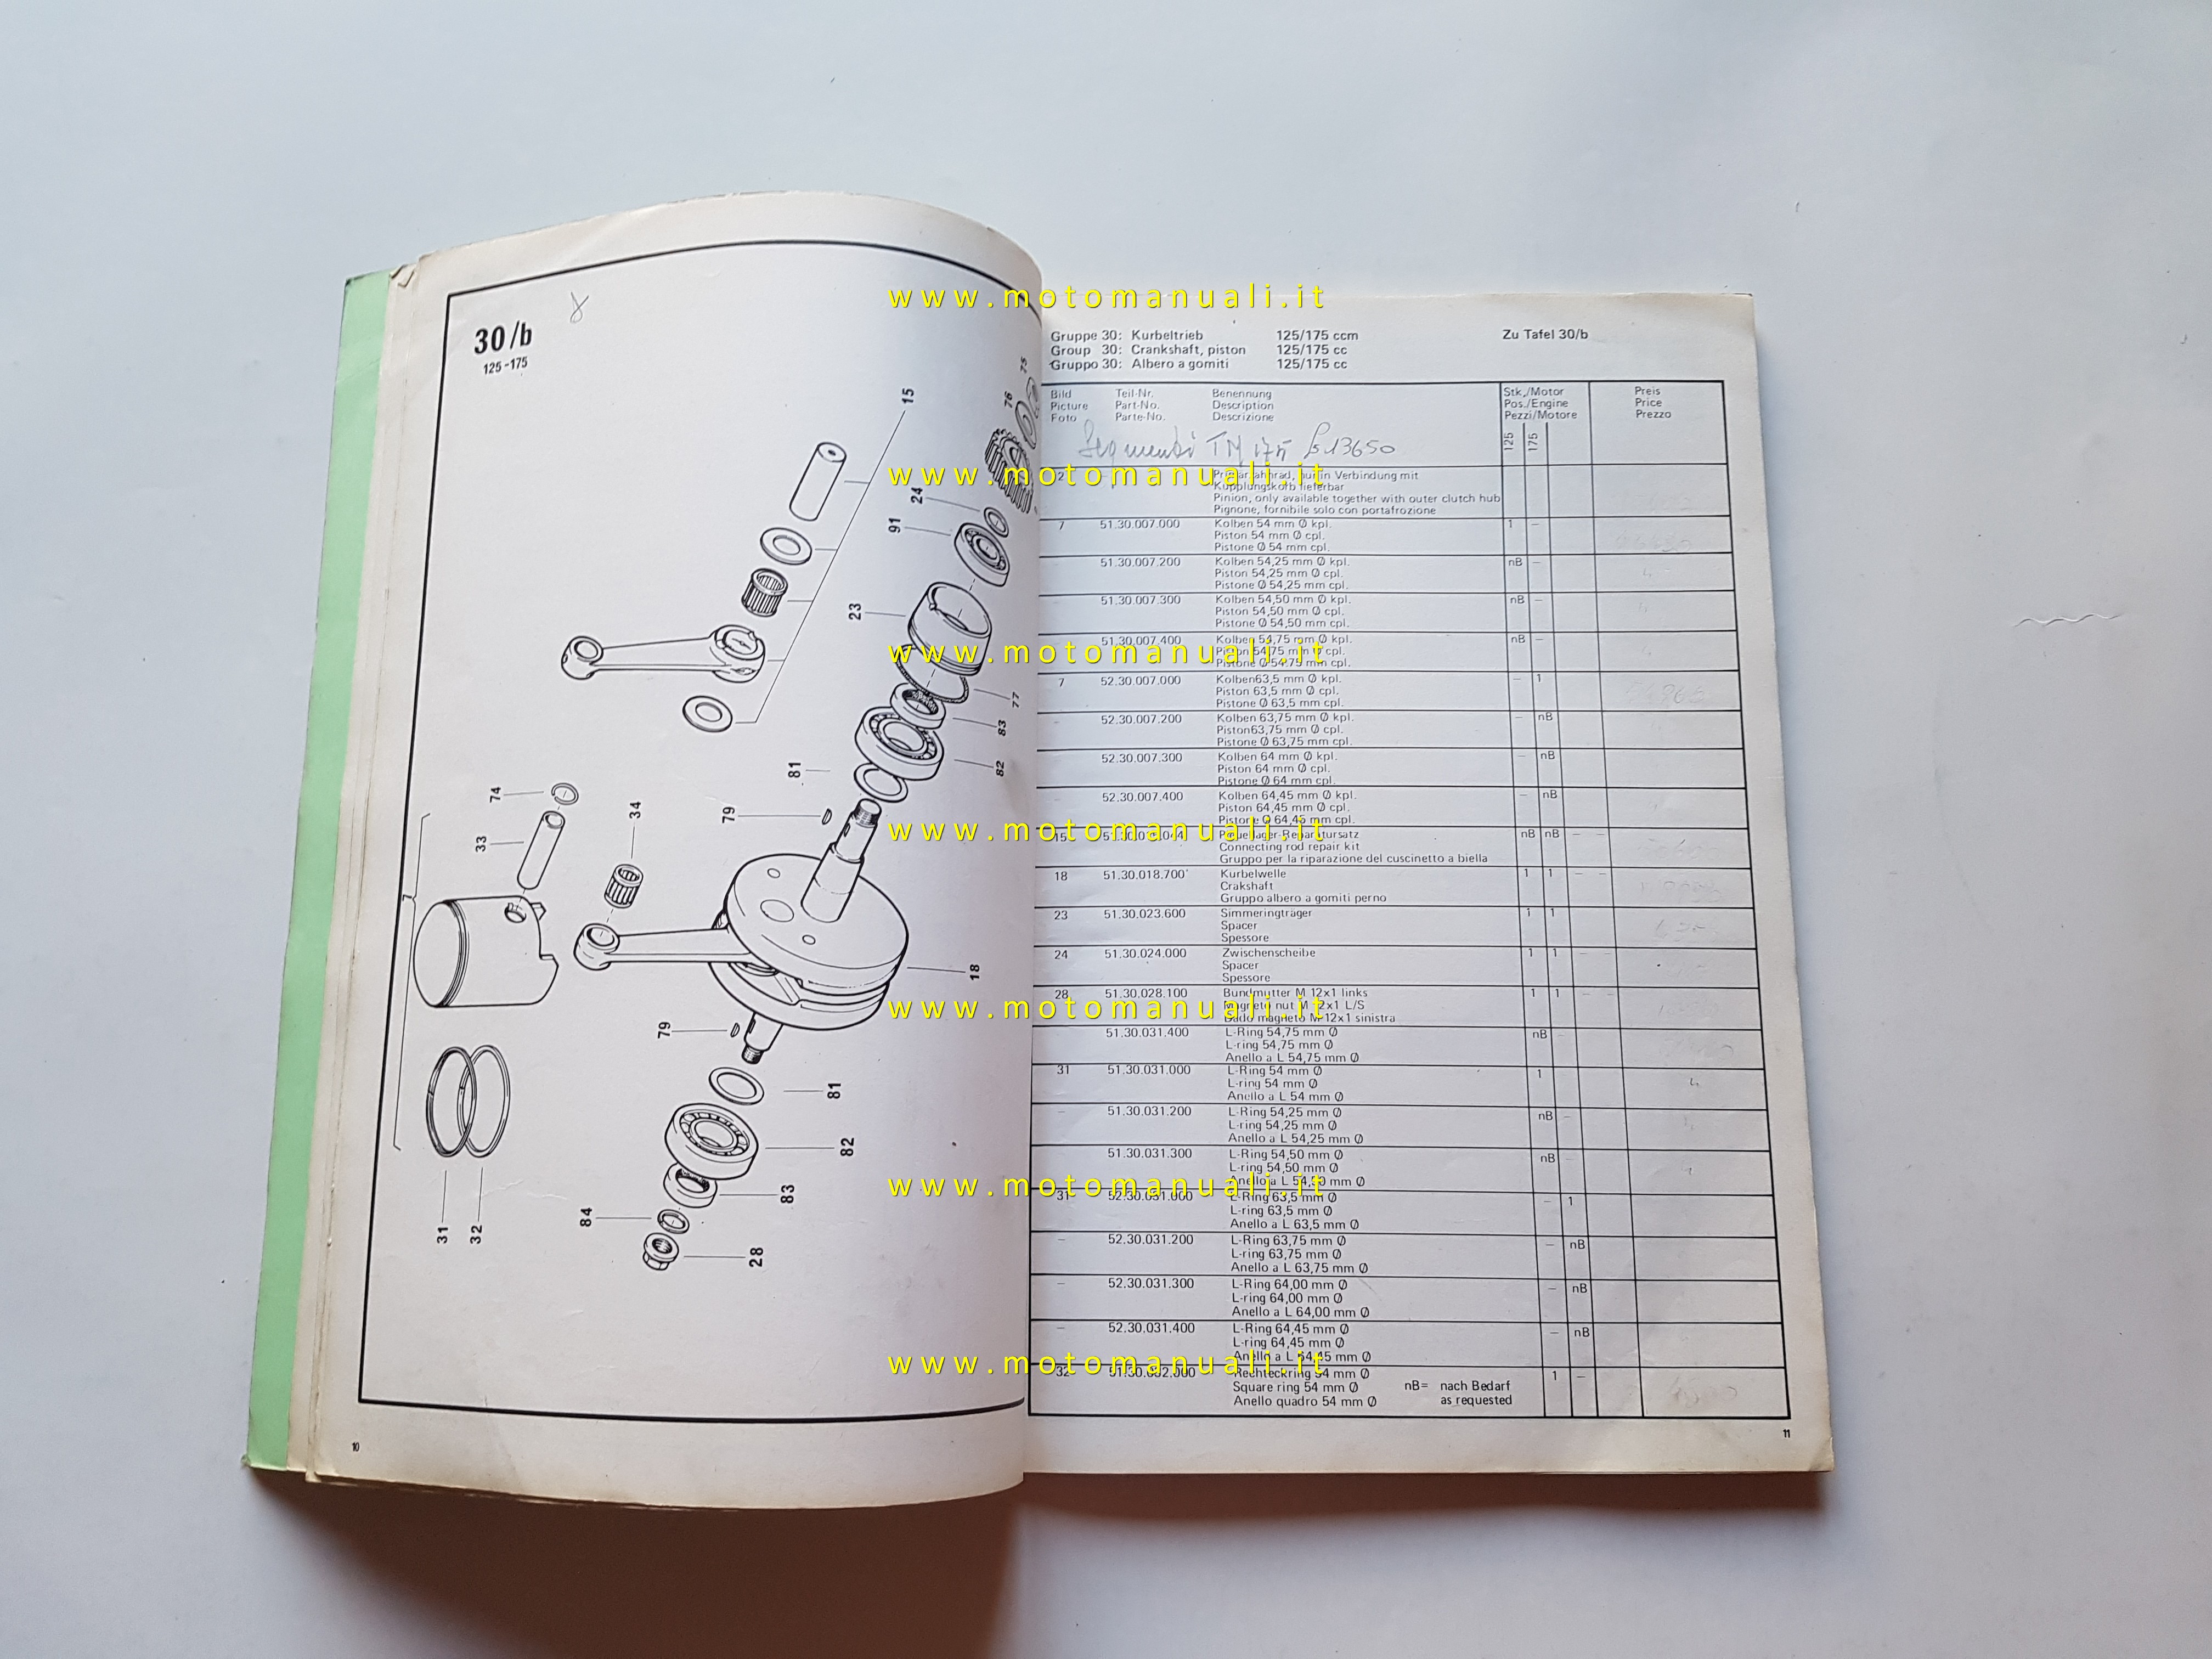 30/b
125-175
8
15
75
76
24
91
23
77
83
82
81
79
74
33
34
7
18
79
81
82
83
84
28
31
32
10
www.motomanuali.it
Gruppe 30: Kurbeltrieb 125/175 ccm Zu Tafel 30/b
Group 30: Crankshaft, piston 125/175 cc
Gruppo 30: Albero a gomiti 125/175 cc
Bild Teil-Nr. Benennung Stk./Motor Preis
Picture Part-No. Description Pos./Engine Price
Foto Parte-No. Descrizione Pezzi/Motore Prezzo
125 175
Segmenti TM 175 £ 13650
www.motomanuali.it
2 in Verbindung mit
Kupplungskorb lieferbar
Pinion, only available together with outer clutch hub
Pignone, fornibile solo con portafrozione
7 51.30.007.000 Kolben 54 mm Ø kpl. 1 –
Piston 54 mm Ø cpl.
Pistone Ø 54 mm cpl.
– 51.30.007.200 Kolben 54,25 mm Ø kpl. nB –
Piston 54,25 mm Ø cpl.
Pistone Ø 54,25 mm cpl.
– 51.30.007.300 Kolben 54,50 mm Ø kpl. nB –
Piston 54,50 mm Ø cpl.
Pistone Ø 54,50 mm cpl.
– 51.30.007.400 Kolben 54,75 mm Ø kpl. nB –
www.motomanuali.it
Piston 54,75 mm Ø cpl.
Pistone Ø 54,75 mm cpl.
7 52.30.007.000 Kolben63,5 mm Ø kpl. – 1
Piston 63,5 mm Ø cpl.
Pistone Ø 63,5 mm cpl.
– 52.30.007.200 Kolben 63,75 mm Ø kpl. – nB
Piston63,75 mm Ø cpl.
Pistone Ø 63,75 mm cpl.
52.30.007.300 Kolben 64 mm Ø kpl. – nB
Piston 64 mm Ø cpl.
Pistone Ø 64 mm cpl.
52.30.007.400 Kolben 64,45 mm Ø kpl. – nB
Piston 64,45 mm Ø cpl.
Pistone Ø 64,45 mm cpl.
www.motomanuali.it
15 nB nB – –
Connecting rod repair kit
Gruppo per la riparazione del cuscinetto a biella
18 51.30.018.700 Kurbelwelle 1 1 – –
Crakshaft
Gruppo albero a gomiti perno
23 51.30.023.600 Simmeringträger 1 1
Spacer
Spessore
24 51.30.024.000 Zwischenscheibe 1 1 – –
Spacer
Spessore
28 51.30.028.100 Bundmutter M 12x1 links 1 1 – –
www.motomanuali.it
Magneto nut M 12x1 L/S
Dado magneto M 12x1 sinistra
51.30.031.400 L-Ring 54,75 mm Ø nB –
L-ring 54,75 mm Ø
Anello a L 54,75 mm Ø
31 51.30.031.000 L-Ring 54 mm Ø 1
L-ring 54 mm Ø
Anello a L 54 mm Ø
– 51.30.031.200 L-Ring 54,25 mm Ø nB –
L-ring 54,25 mm Ø
Anello a L 54,25 mm Ø
51.30.031.300 L-Ring 54,50 mm Ø nB –
L-ring 54,50 mm Ø
Anello a L 54,50 mm Ø
www.motomanuali.it
31 52.30.031.000 L-Ring 63,5 mm Ø – 1
L-ring 63,5 mm Ø
Anello a L 63,5 mm Ø
– 52.30.031.200 L-Ring 63,75 mm Ø – nB
L-ring 63,75 mm Ø
Anello a L 63,75 mm Ø
– 52.30.031.300 L-Ring 64,00 mm Ø – nB
L-ring 64,00 mm Ø
Anello a L 64,00 mm Ø
– 52.30.031.400 L-Ring 64,45 mm Ø – nB
L-ring 64,45 mm Ø
Anello a L 64,45 mm Ø
www.motomanuali.it
32 51.30.032.000 Rechteckring 54 mm Ø 1 –
Square ring 54 mm Ø nB= nach Bedarf
Anello quadro 54 mm Ø as requested
11